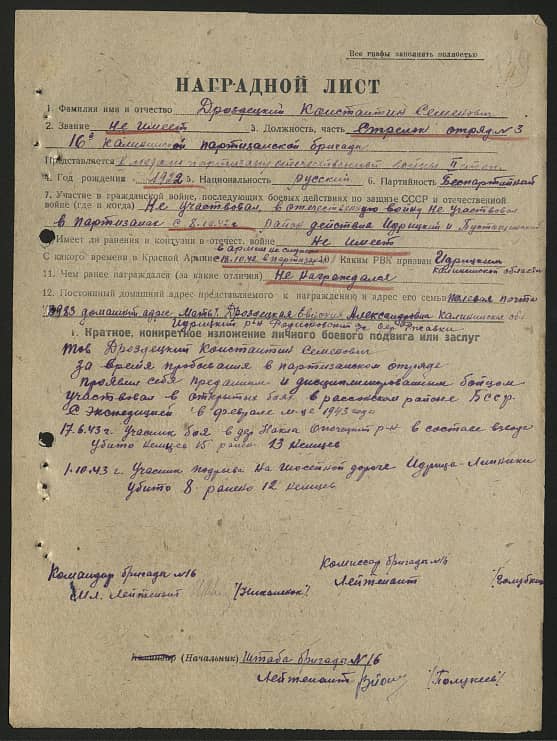 Все графы заполнять полностью
НАГРАДНОЙ ЛИСТ
1. Фамилия имя и отчество Дроздецкий Константин Семенович
2. Звание Не имеет 3. Должность, часть Стрелок отряд N 3
16й Калининской партизанской бригады
Представляется к медали партизану отечественной войны II степ.
4. Год рождения 1922 5. Национальность Русский 6. Партийность Беспартийный
7. Участие в гражданской войне, последующих боевых действиях по защите СССР и отечественной
войне (где и когда) Не участвовал, в отечественную войну не участвовал
в партизанах с 8.10.42 г. Район действия Идрицкий и Пустошкинский
Имеет ли ранения и контузии в отечест. войне Не имеет
в армии не служил
С какого времени в Красной Армии с 8.10.42 в партизан 10. Каким РВК призван Идрицким
Калининской области
11. Чем ранее награждался (за какие отличия) Не награждался
12. Постоянный домашний адрес представляемого к награждению и адрес его семьи полевая почта
домашний адрес Мать: Дроздецкая Александровна Калининская об.
Идрицкий р-н с/с дер.
I. Краткое, конкретное изложение личного боевого подвига или заслуг
Тов Дроздецкий Константин Семенович
за время пребывания в партизанском отряде
проявил себя преданным и дисциплинированным бойцом
участвовал в открытых боях в россонском районе БССР
с экспедицией в феврале м-це 1943 года
17.6.43 г. Участник боя в дер Накла Опочецкий р-н в составе взвода
Убито немцев 15 ранен. 13 немцев
1.10.43 г. Участник подрыва на шоссейной дороге Идрица-
Убито 8 ранено 12 немцев
Командир бригады N 16
Мл. Лейтенант
Комиссар бригады N 16
Лейтенант
(Начальник) Штаба бригады N 16
Лейтенант